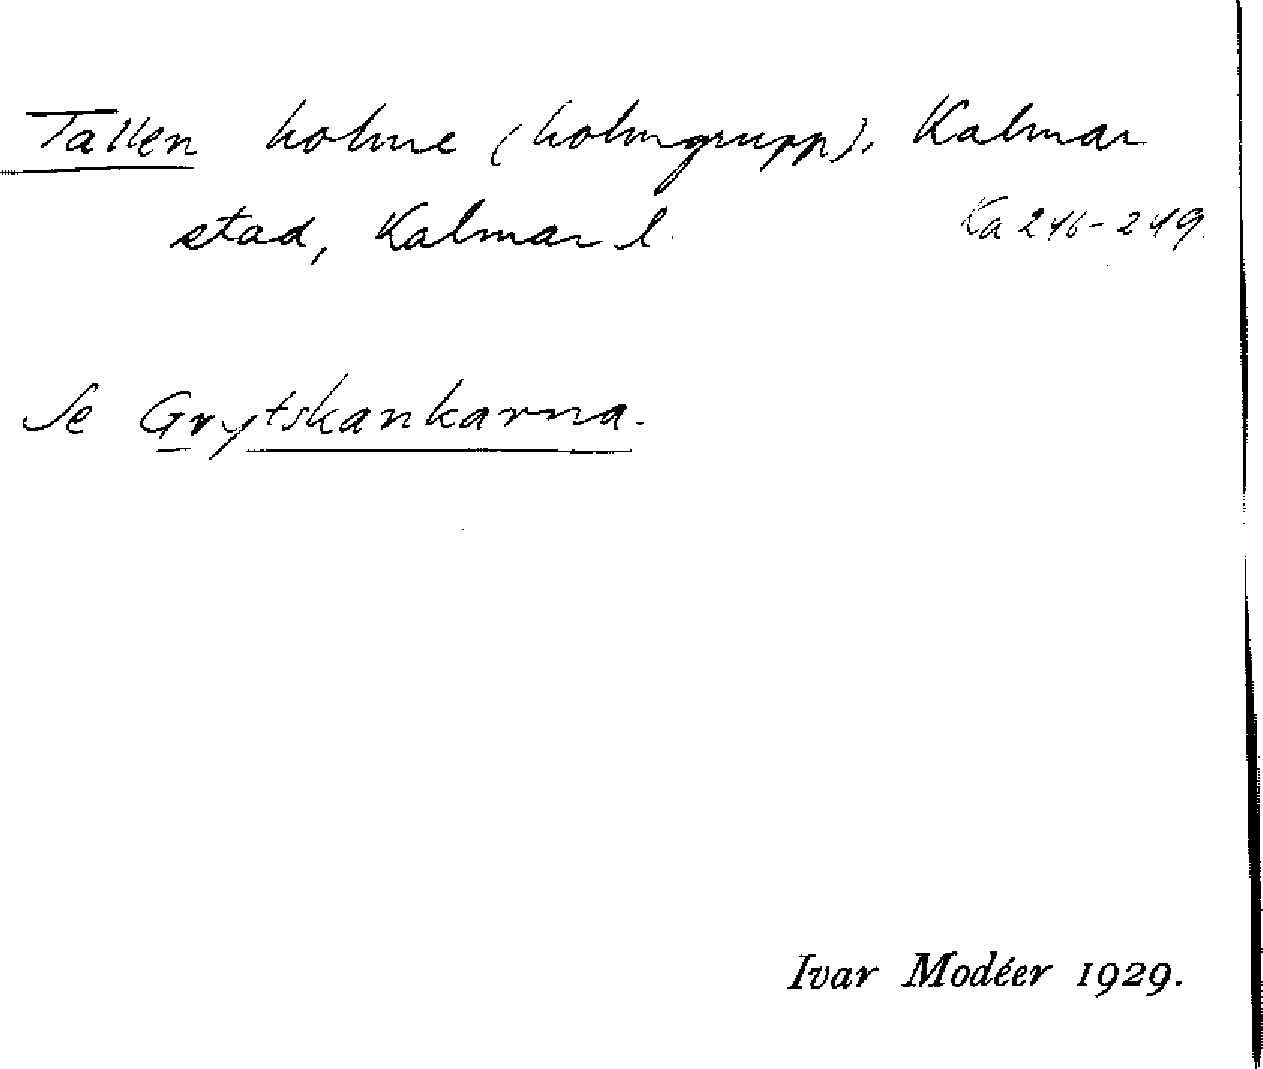 Tallen holme (holmgrupp), Kalmar
stad, Kalmar l. Ka 246-249.
Se Grytskankarna.
Ivar Modéer 1929.